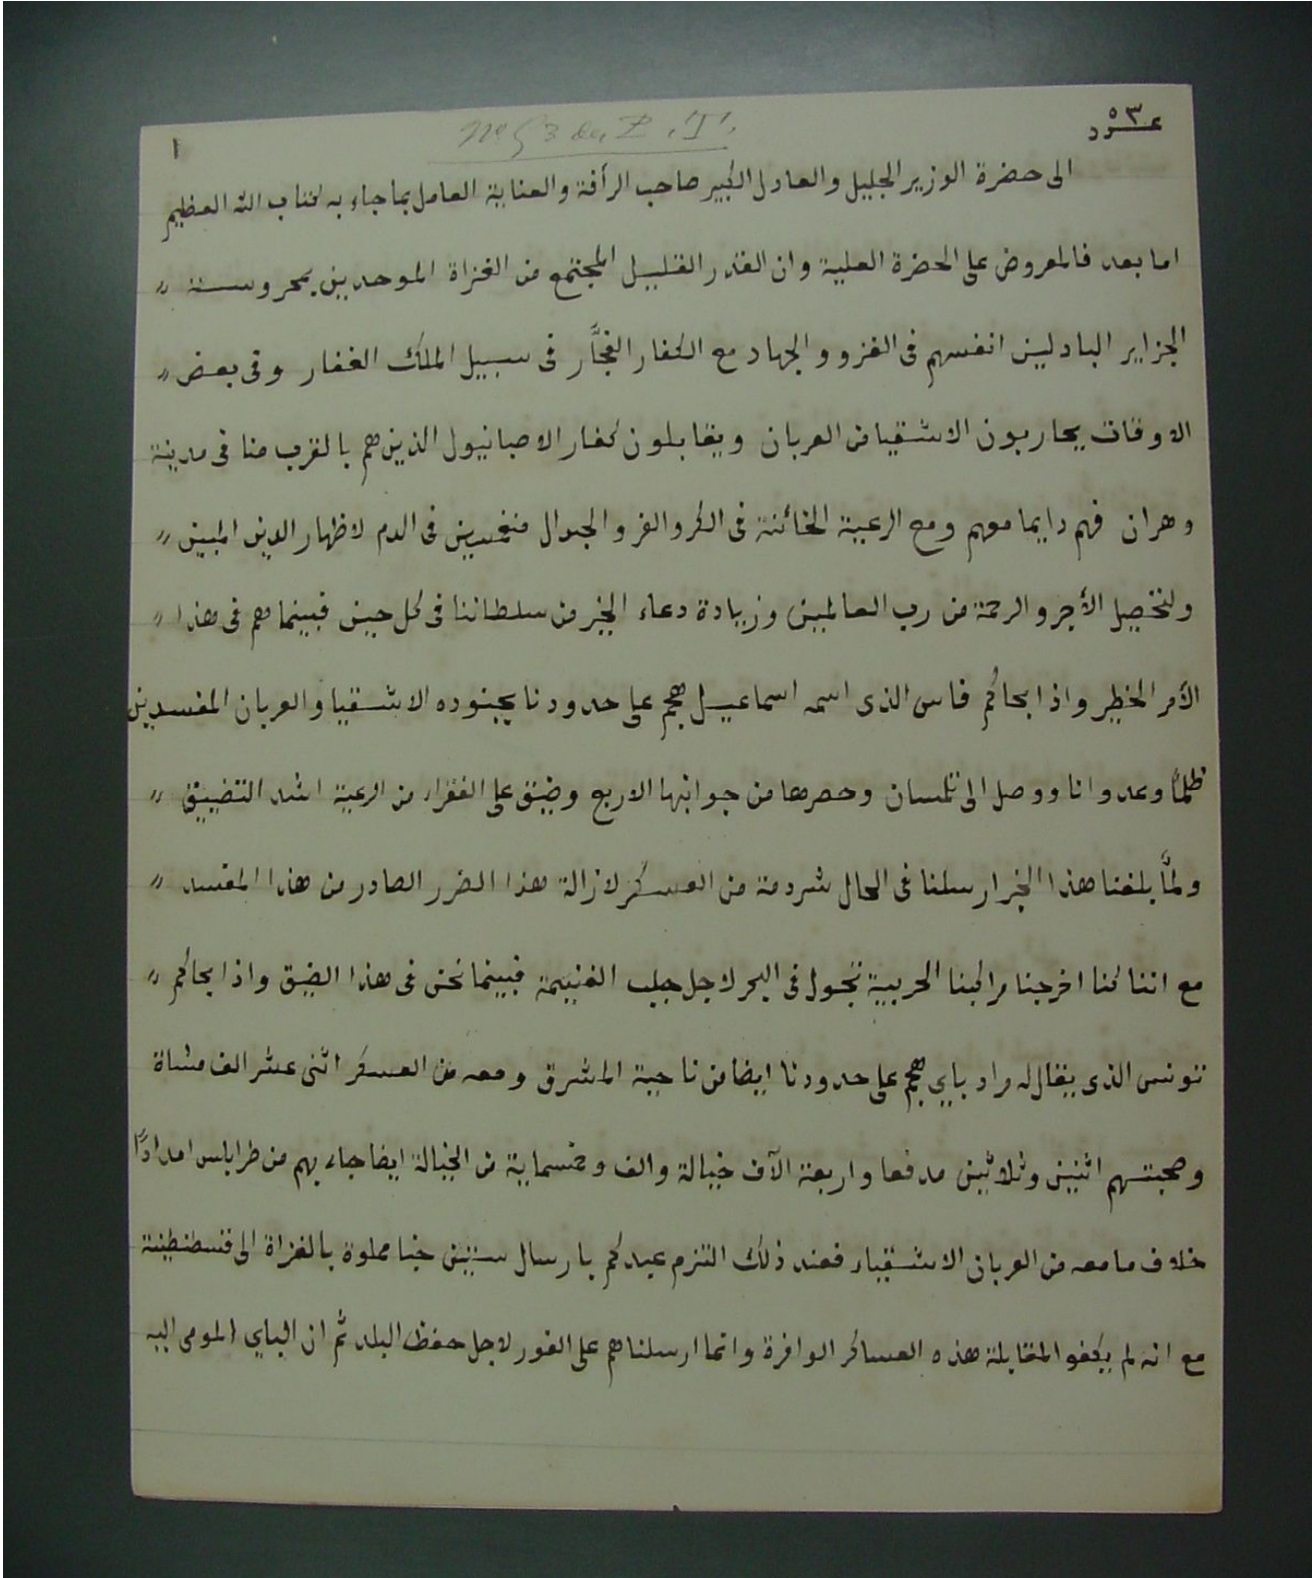 عــدد ٥٣
١
الى حضرة الوزير الجليل والعادل الكبير صاحب الرأفة والعناية العامل بما جاء به كتاب الله العظيم
اما بعد فالمعروض على الحضرة العلية وان القدر القليل المجتمع من الغزاة الموحدين بمحروسة "
الجزاير البادلين انفسهم فى الغزو والجهاد مع الكفار الفجّار فى سبيل الملك الغفار وفى بعض "
الاوقات يحاربون الاشقيا من العربان ويقابلون كفار الاصبانيول الذين هم بالقرب منا فى مدينة
وهران فهم دايما معهم ومع الرعية الخائنة فى الكر والفر والجدال منغمسين فى الدم لاظهار الدين المبين "
ولتحصيل الأجر والرحمة من رب العالمين وزيادة دعاء الخير من سلطاننا فى كل حين فبينما هم فى هذا "
الأمر الخطير واذا بحاكم فاس الذى اسمه اسماعيل هجم على حدودنا بجنوده الاشقيا والعربان المفسدين
ظلماً وعدوانا ووصل الى تلمسان وحصرها من جوانبها الاربع وضيق على الفقراء من الرعية اشد التضييق "
ولمّا بلغنا هذا الخبر ارسلنا فى الحال شردمة من العسكر لازالة هذا الضرر الصادر من هذا المفسد "
مع اننا كنا اخرجنا مراكبنا الحربية تجول فى البحر لاجل جلب الغنيمة فبينما نحن فى هذا الضيق واذا بحاكم "
تونس الذى يقال له مراد باي هجم على حدودنا ايضا من ناحية المشرق ومعه من العسكر اثنى عشر الف مشاة
وصحبتهم اثنين وثلاثين مدفعا واربعة الآف خيالة والف وخمسماية من الخيالة ايضا جاء بهم من طرابلس امدادًا
خلاف ما معه من العربان الاشقياء فعند ذلك التزم عبدكم بارسال ستين خبا مملوة بالغزاة الى قسطنطينة
مع انه لم يكفو المقابلة هذه العساكر الوافرة وانما ارسلناهم على الفور لاجل حفظ البلد ثم ان الباي المومى اليه